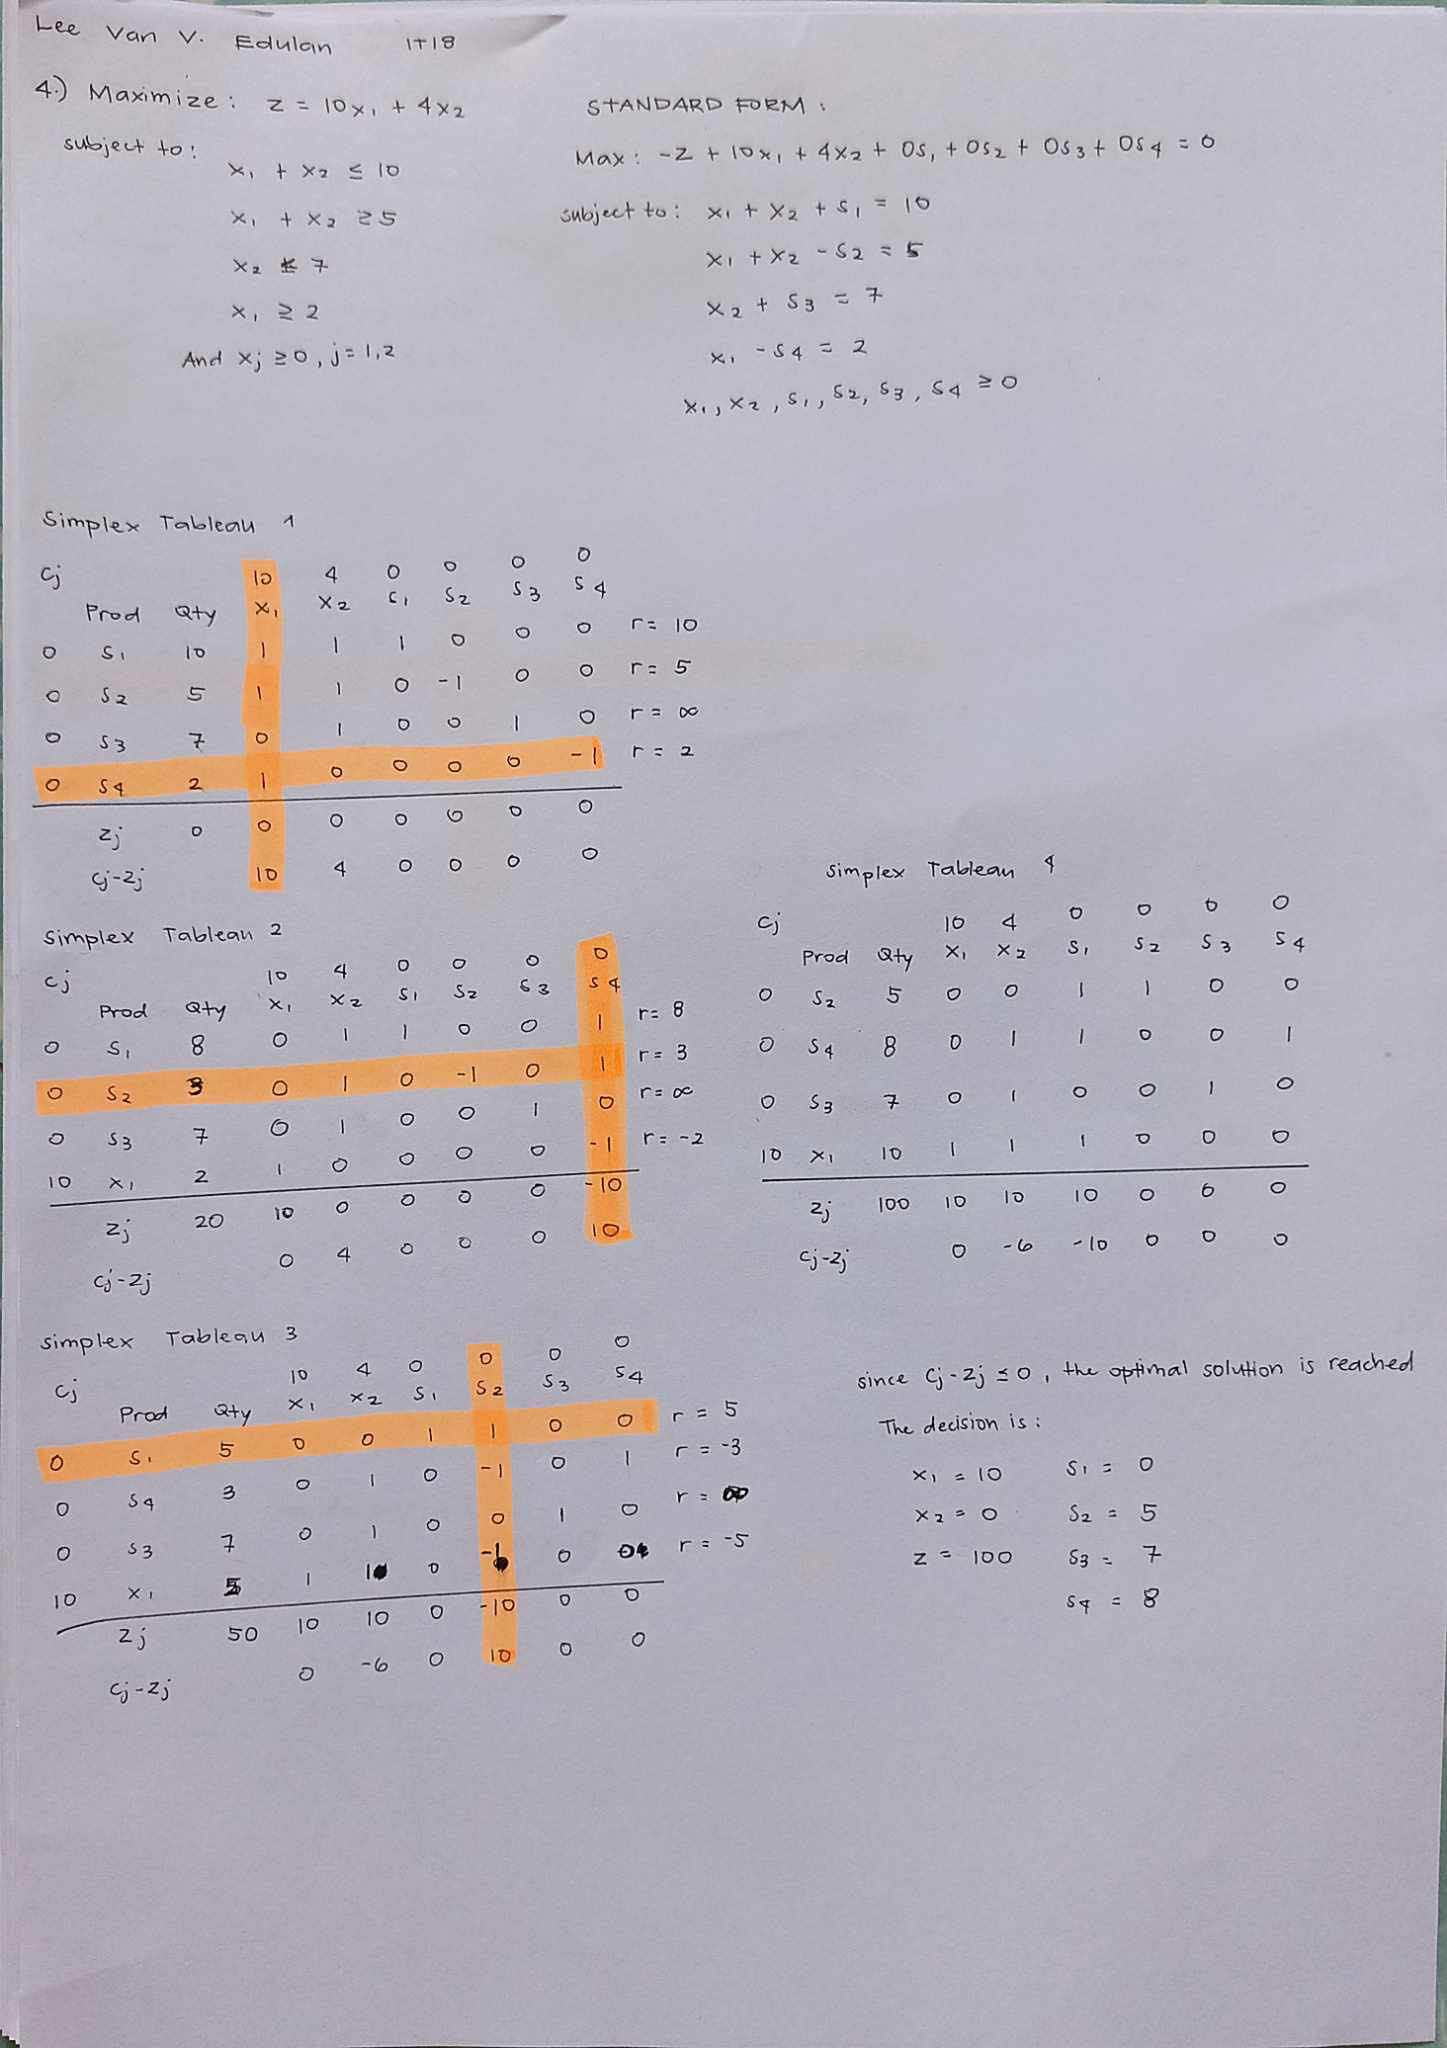 Lee Van V. Edulan IT18
4.) Maximize: z = 10x₁ + 4x₂
subject to:
x₁ + x₂ ≤ 10
x₁ + x₂ ≥ 5
x₂ ≤ 7
x₁ ≥ 2
And xj ≥ 0, j = 1,2
STANDARD FORM:
Max: -z + 10x₁ + 4x₂ + 0s₁ + 0s₂ + 0s₃ + 0s₄ = 0
subject to: x₁ + x₂ + s₁ = 10
x₁ + x₂ - s₂ = 5
x₂ + s₃ = 7
x₁ - s₄ = 2
x₁, x₂, s₁, s₂, s₃, s₄ ≥ 0
Simplex Tableau 1
Cj 10 4 0 0 0 0
Prod Qty x₁ x₂ s₁ s₂ s₃ s₄
0 s₁ 10 1 1 1 0 0 0 r = 10
0 s₂ 5 1 1 0 -1 0 0 r = 5
0 s₃ 7 0 1 0 0 1 0 r = ∞
0 s₄ 2 1 0 0 0 0 -1 r = 2
zj 0 0 0 0 0 0 0
cj-zj 10 4 0 0 0 0
Simplex Tableau 2
Cj 10 4 0 0 0 0
Prod Qty x₁ x₂ s₁ s₂ s₃ s₄
0 s₁ 8 0 1 1 0 0 1 r = 8
0 s₂ 3 0 1 0 -1 0 1 r = 3
0 s₃ 7 0 1 0 0 1 0 r = ∞
10 x₁ 2 1 0 0 0 0 -1 r = -2
zj 20 10 0 0 0 0 -10
cj-zj 0 4 0 0 0 10
Simplex Tableau 3
Cj 10 4 0 0 0 0
Prod Qty x₁ x₂ s₁ s₂ s₃ s₄
0 s₁ 5 0 0 1 1 0 0 r = 5
0 s₄ 3 0 1 0 -1 0 1 r = -3
0 s₃ 7 0 1 0 0 1 0 r = ∞
10 x₁ 5 1 1 0 -1 0 0 r = -5
zj 50 10 10 0 -10 0 0
cj-zj 0 -6 0 10 0 0
Simplex Tableau 4
Cj 10 4 0 0 0 0
Prod Qty x₁ x₂ s₁ s₂ s₃ s₄
0 s₂ 5 0 0 1 1 0 0
0 s₄ 8 0 1 1 0 0 1
0 s₃ 7 0 1 0 0 1 0
10 x₁ 10 1 1 1 0 0 0
zj 100 10 10 10 0 0 0
cj-zj 0 -6 -10 0 0 0
since cj-zj ≤ 0, the optimal solution is reached
The decision is:
x₁ = 10 s₁ = 0
x₂ = 0 s₂ = 5
z = 100 s₃ = 7
s₄ = 8